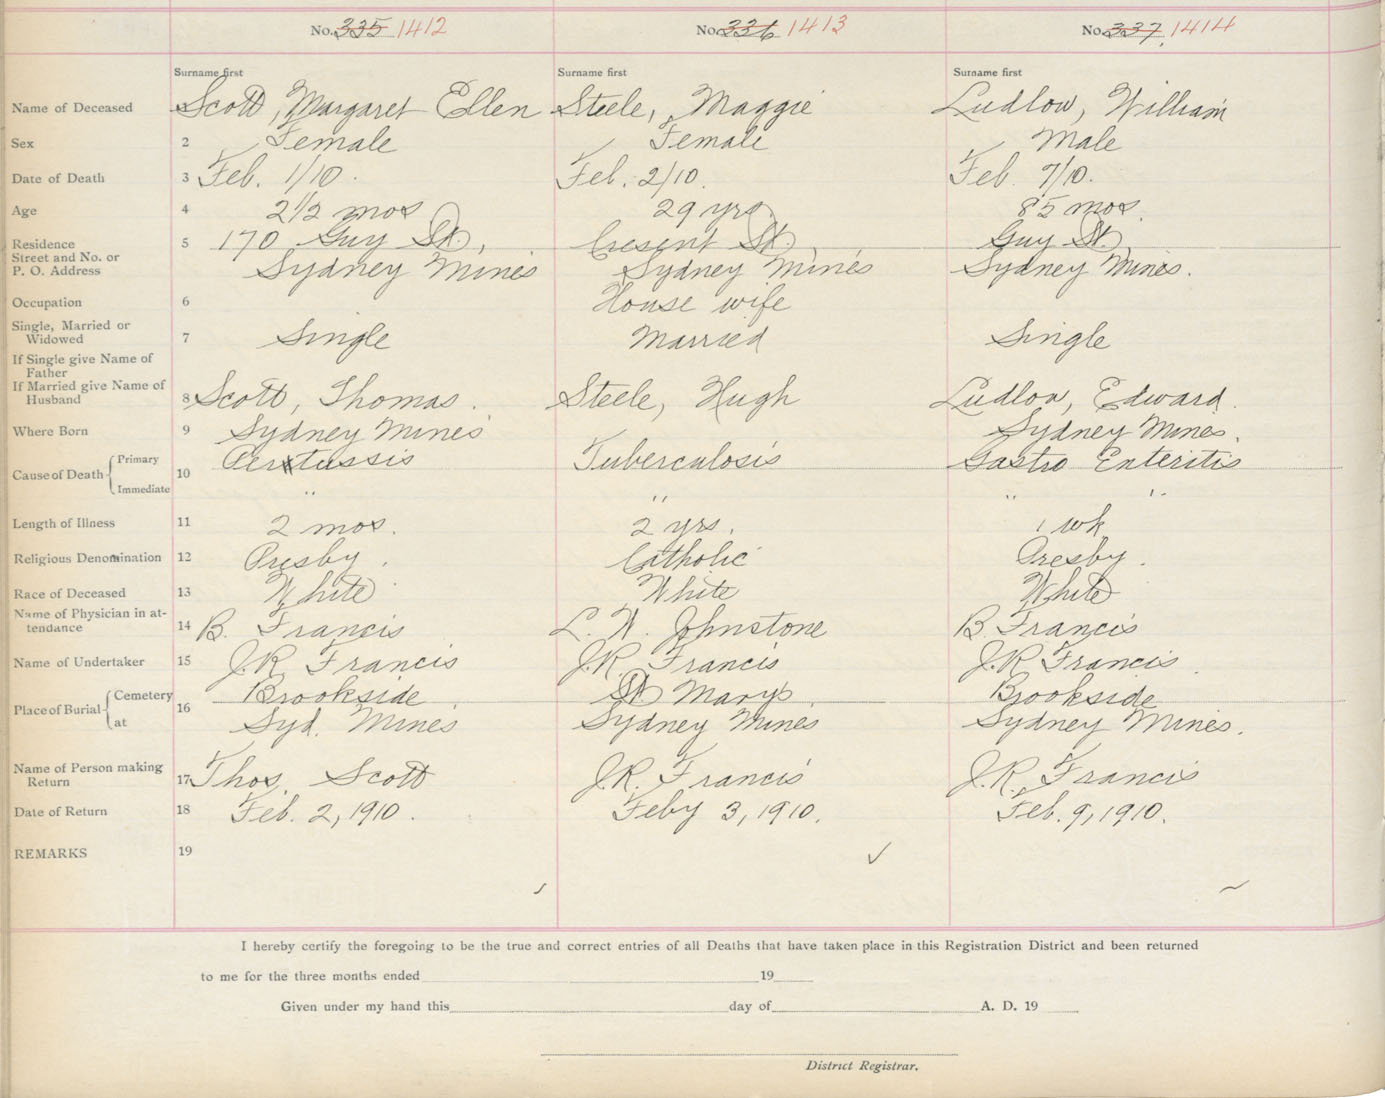 No. 335 1412 No. 336 1413 No. 337 1414
Surname first Surname first Surname first
Name of Deceased 1 Scott, Margaret Ellen Steele, Maggie Ludlow, William
Sex 2 Female Female Male
Date of Death 3 Feb. 1/10. Feb. 2/10. Feb. 7/10.
Age 4 2 1/2 mos 29 yrs. 85 mos.
Residence 5 170 Guy St., Cresent St., Guy St,
Street and No. or
P. O. Address Sydney Mines Sydney Mines Sydney Mines.
Occupation 6 House wife
Single, Married or
Widowed 7 Single Married Single
If Single give Name of
Father
If Married give Name of
Husband 8 Scott, Thomas. Steele, Hugh Ludlow, Edward.
Where Born 9 Sydney Mines Sydney Mines.
Cause of Death Primary 10 Pertussis Tuberculosis Gastro Enteritis
Immediate " " " "
Length of Illness 11 2 mos. 2 yrs. 1 wk
Religious Denomination 12 Presby. Catholic Presby.
Race of Deceased 13 White White White
Name of Physician in at-
tendance 14 B. Francis L. W. Johnstone B. Francis
Name of Undertaker 15 J.R. Francis J.R. Francis J.R. Francis
Place of Burial Cemetery 16 Brookside St Marys Brookside
at Syd. Mines Sydney Mines Sydney Mines.
Name of Person making
Return 17 Thos. Scott J.R. Francis J.R. Francis
Date of Return 18 Feb. 2, 1910. Feby 3, 1910. Feb. 9, 1910.
REMARKS 19
I hereby certify the foregoing to be the true and correct entries of all Deaths that have taken place in this Registration District and been returned
to me for the three months ended 19
Given under my hand this day of A. D. 19
District Registrar.